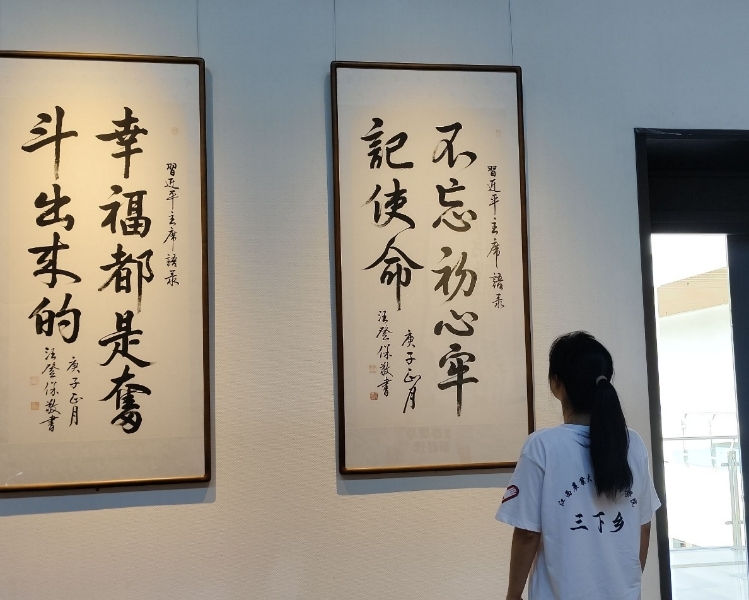 習近平主席語录
不忘初心牢
記使命
庚子正月
汪登保敬書
習近平主席語录
幸福都是奮
斗出来的
庚子正月
汪登保敬書
江西農業大
三下乡